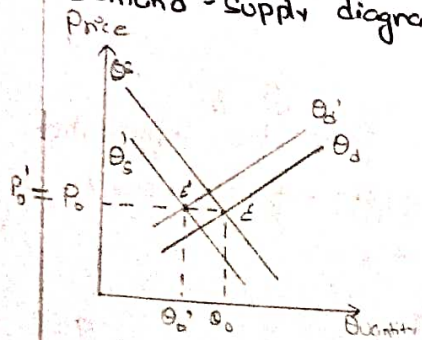 Demand-Supply diagra
Price
Qs
Qd'
Qs'
Qd
P0' = P0
E'
E
Q0' Q0
Quantity